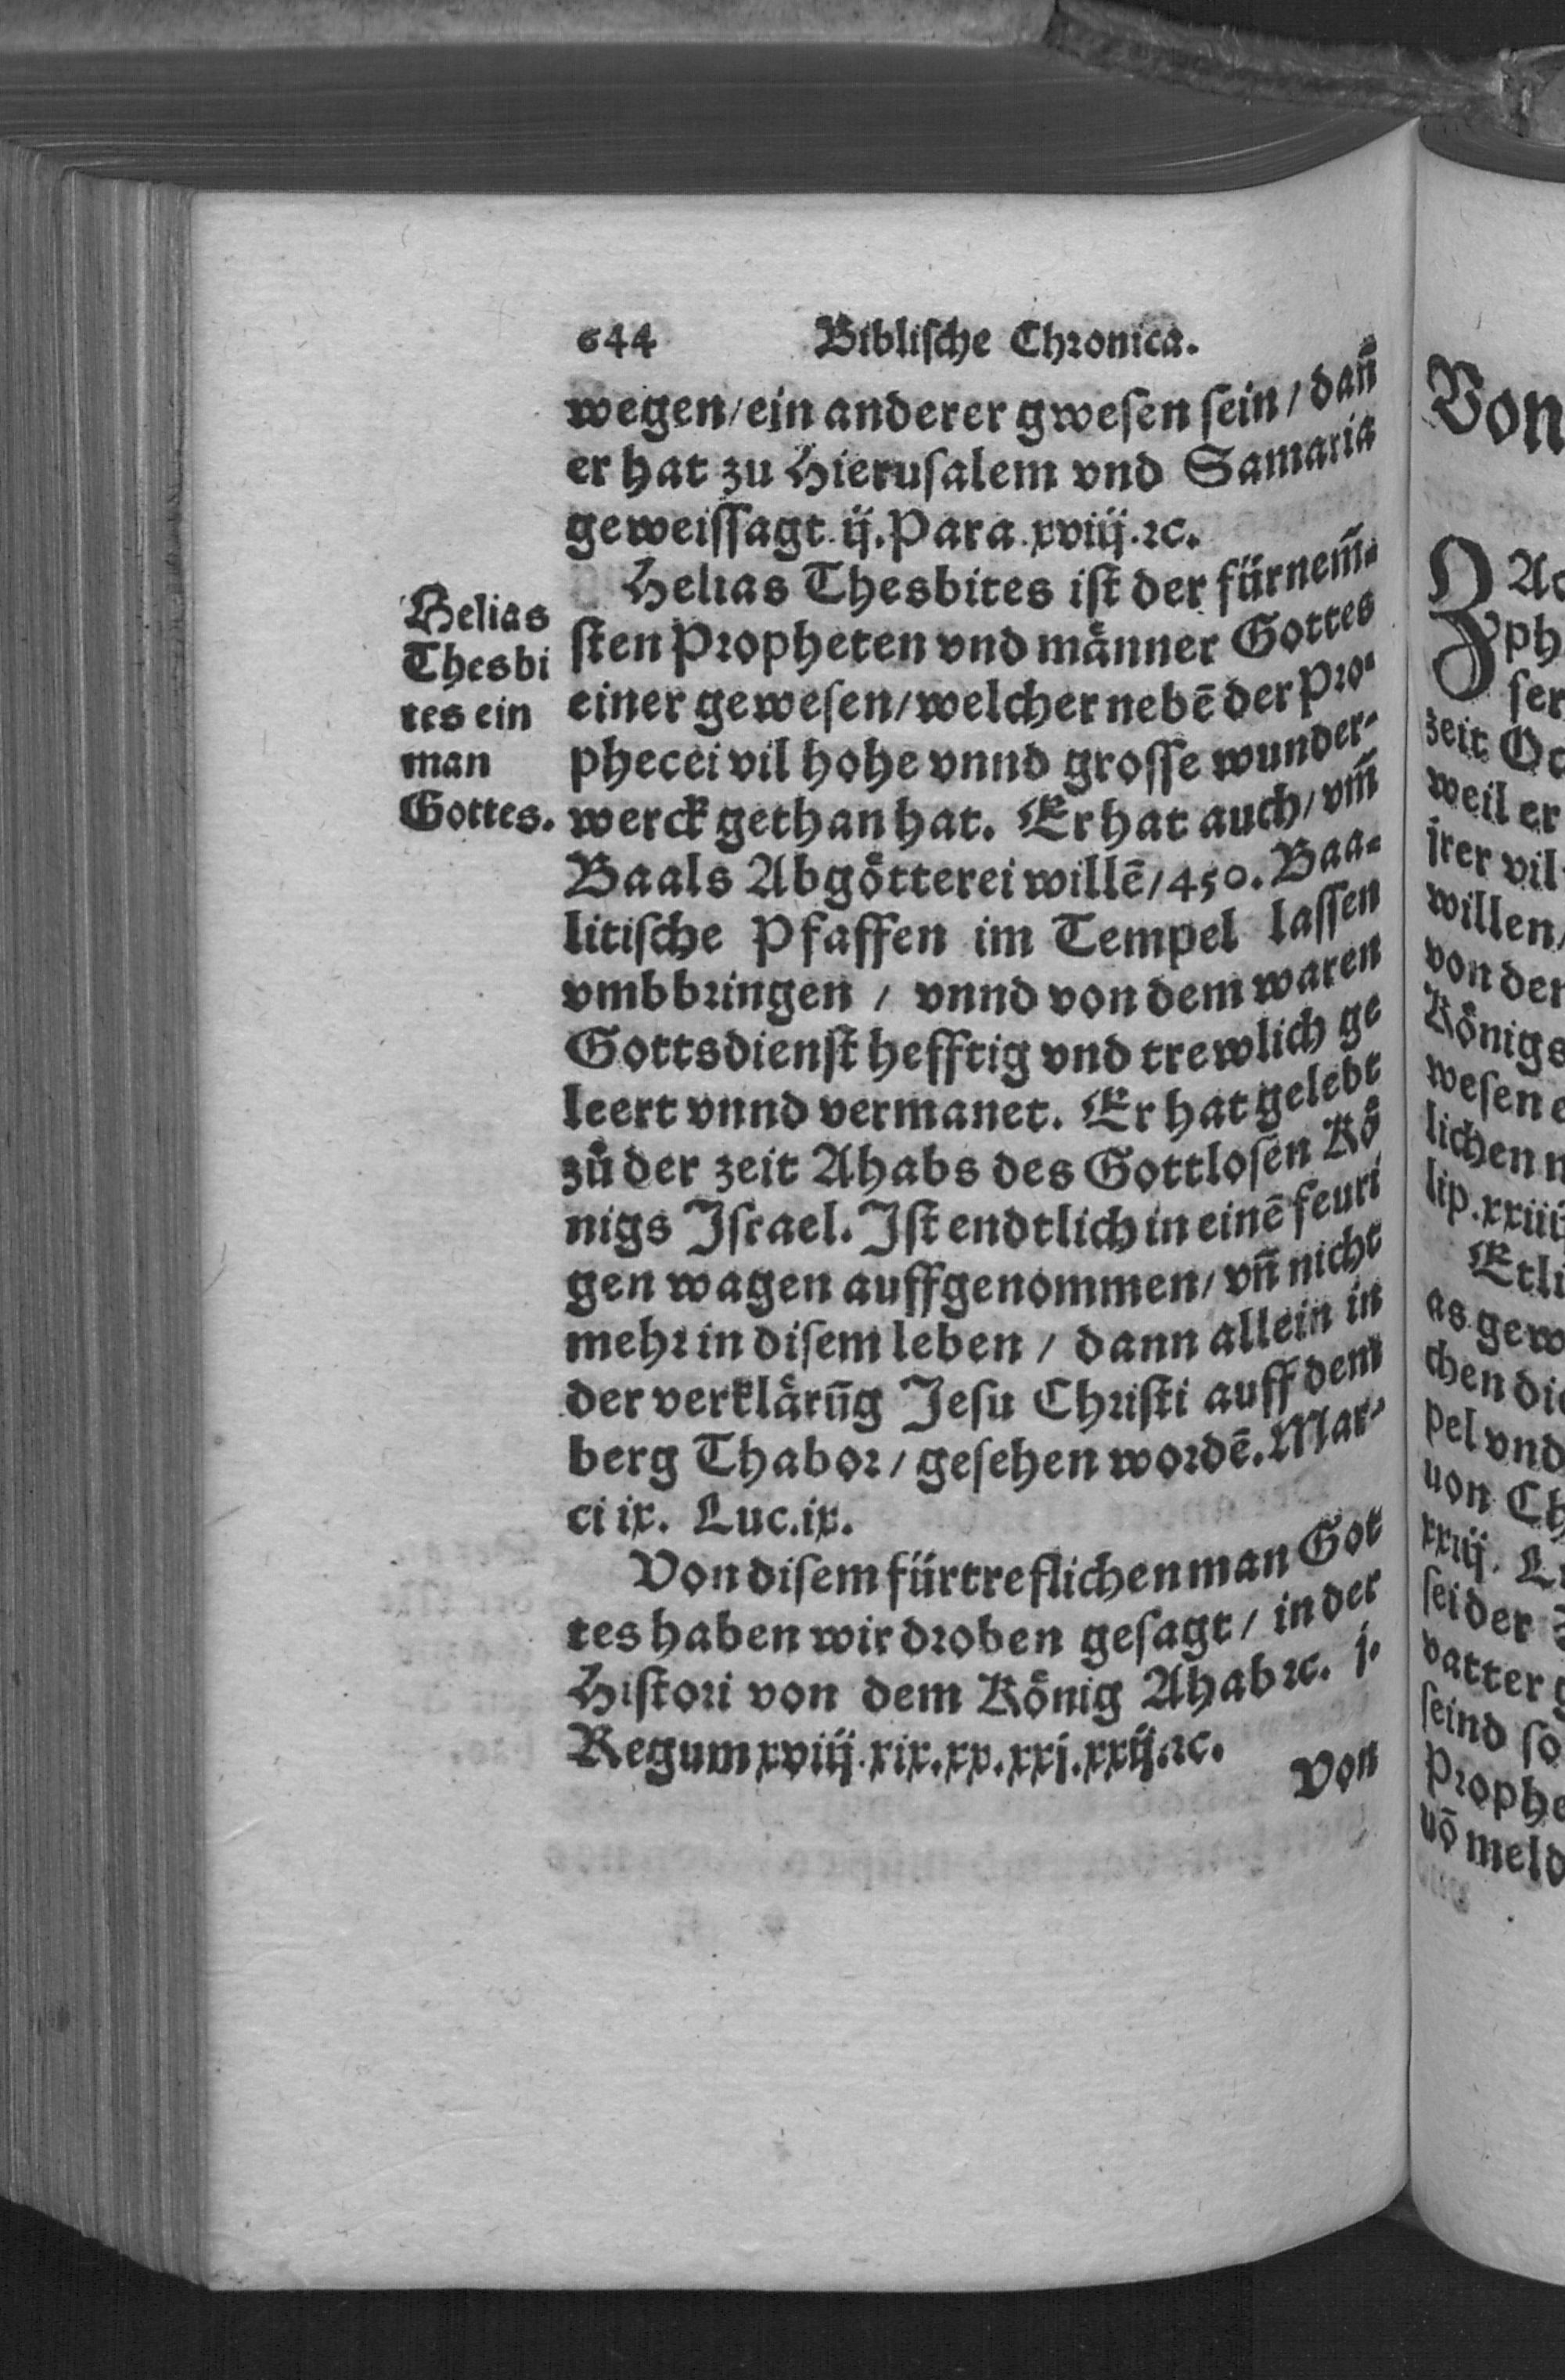 644 Biblische Chronica.
wegen/ein anderer gwesen sein/dañ
er hat zu Hierusalem vnd Samaria
geweissagt.ij.Para.xviij.ꝛc.
Helias Thesbites ist der fürnem̃-
sten Propheten vnd maͤnner Gottes
einer gewesen/welcher nebẽ der Pro-
phecei vil hohe vnnd grosse wunder-
werck gethan hat. Er hat auch/vm̃
Baals Abgoͤtterei willẽ/450. Baa-
litische Pfaffen im Tempel lassen
vmbbringen / vnnd von dem waren
Gottsdienst hefftig vnd trewlich ge
leert vnnd vermanet. Er hat gelebt
zuͦ der zeit Ahabs des Gottlosen Koͤ
nigs Israel. Ist endtlich in einẽ feuri
gen wagen auffgenommen/vñ nicht
mehr in disem leben / dann allein in
der verklaͤrũg Jesu Christi auff dem
berg Thabor/gesehen wordẽ. Mar-
ci ix. Luc.ix.
Von disem fürtreflichen man Got
tes haben wir droben gesagt/ in der
Histori von dem Koͤnig Ahab ꝛc. j.
Regum xviij.xix.xx.xxj.xxij.ꝛc.
Von
Helias
Thesbi
tes ein
man
Gottes.
Von
ph
ser
zeit
weil er
jrer vil
willen/
von der
Koͤnigs
wesen
lichen
lip.xxiii
Etli
as gew
chen die
pel vnd
uon Ch
xxiij.
sei der
vatter
seind so
Prophe
uõ meld